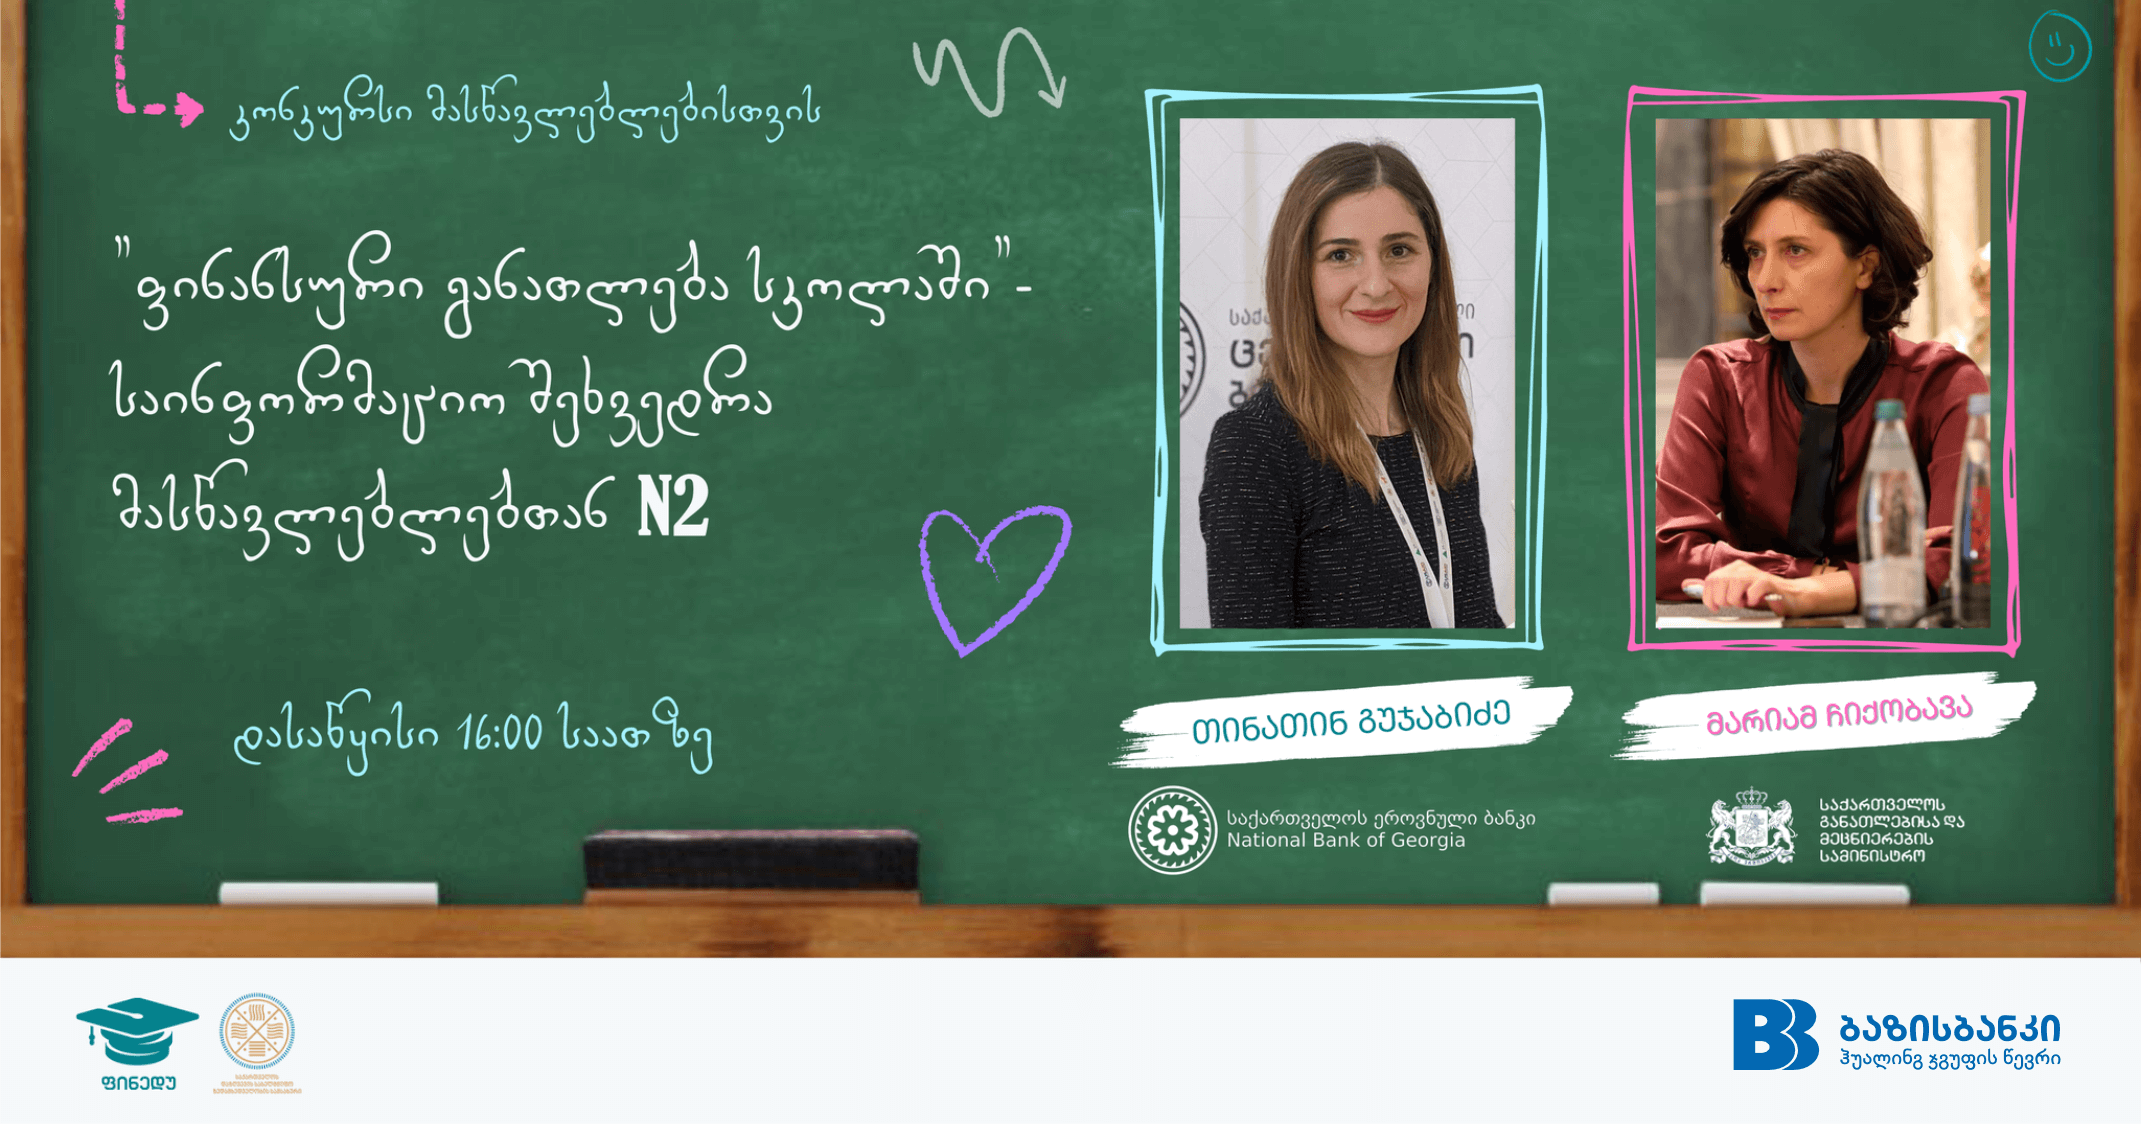 კონკურსი მასწავლებლებისთვის
"ფინანსური განათლება სკოლაში"-
საინფორმაციო შეხვედრა
მასწავლებლებთან N2
დასაწყისი 16:00 საათზე
თინათინ გუჯაბიძე
მარიამ ჩიქობავა
საქართველოს ეროვნული ბანკი
National Bank of Georgia
საქართველოს
განათლებისა და
მეცნიერების
სამინისტრო
ფინედუ
საქართველოს
დაზღვევის სახელმწიფო
ზედამხედველობის სამსახური
ბაზისბანკი
ჰუალინგ ჯგუფის წევრი